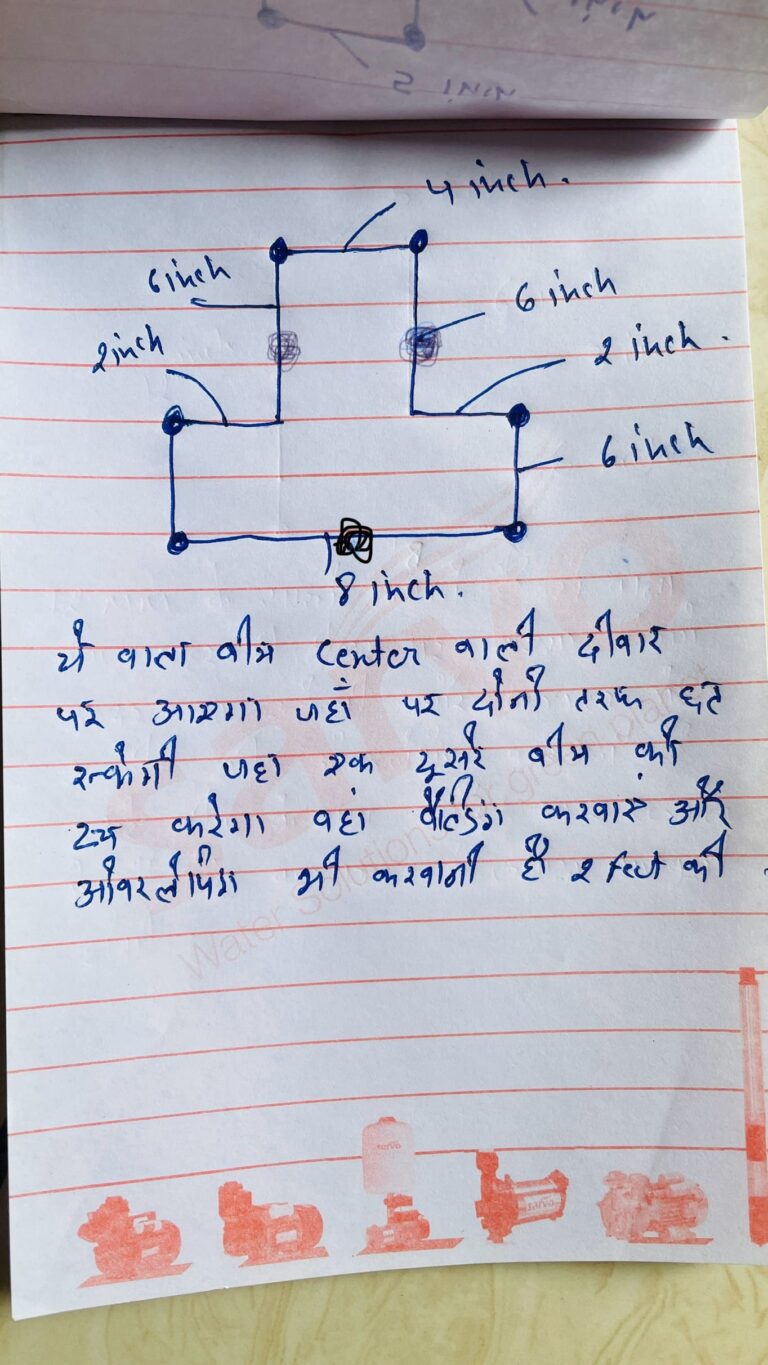 4 inch.
6 inch
6 inch
2 inch
2 inch.
6 inch
8 inch.
ये वाला बीम center वाली दीवार
पर आएगा जहाँ पर दोनों तरफ छत
रुकेगी जहा एक दूसरे बीम को
टच करेगा वहां वैल्डिंग करवाए और
ओवरलेपिंग भी करवानी है 2 feet की.
Water Solutions for green planet
sarvo
sarvo